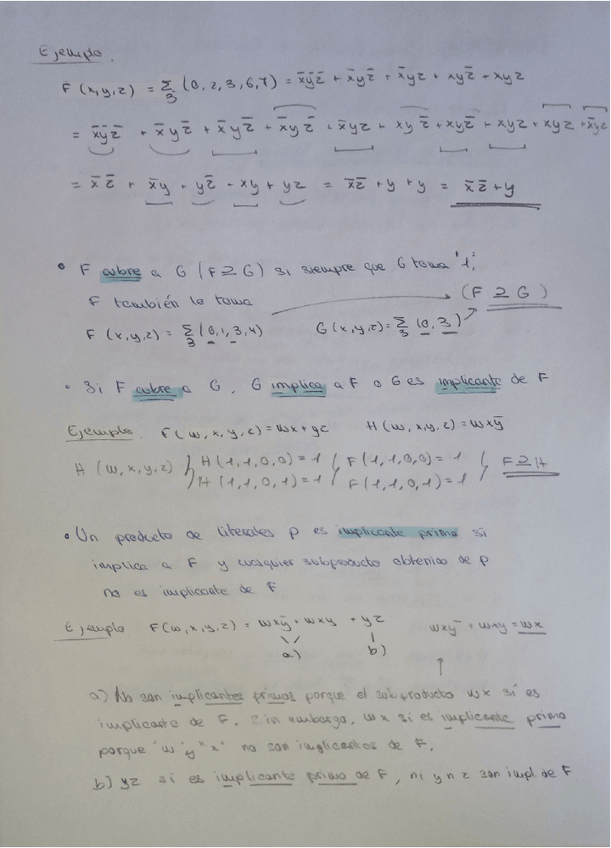 Ejemplo.
F(x,y,z) = Σ₃ (0,2,3,6,7) = x̄ȳz̄ + x̄yz̄ + x̄yz + xyz̄ + xyz
= x̄ȳz̄ + x̄yz̄ + x̄yz̄ + x̄yz̄ + x̄yz + xyz̄ + xyz̄ + xyz + xyz + x̄yz
= x̄z̄ + x̄y + yz̄ + xy + yz = x̄z̄ + y + y = x̄z̄ + y
• F cubre a G (F ⊇ G) si siempre que G toma '1',
F también lo toma
(F ⊇ G)
F(x,y,z) = Σ₃ (0,1,3,4) G(x,y,z) = Σ₃ (0,3)
• Si F cubre a G, G implica a F o G es implicante de F
Ejemplo. F(w,x,y,z) = wx + yz H(w,x,y,z) = wxȳ
H(w,x,y,z) } H(1,1,0,0) = 1 / F(1,1,0,0) = 1 / F ⊇ H
H(1,1,0,1) = 1 F(1,1,0,1) = 1
• Un producto de literales p es implicante primo si
implica a F y cualquier subproducto obtenido de p
no es implicante de F
Ejemplo F(w,x,y,z) = wxȳ + wxy + yz wxȳ + wxy = wx
a) b)
a) No son implicantes primos porque el subproducto wx sí es
implicante de F. Sin embargo, wx sí es implicante primo
porque "w" y "x" no son implicantes de F.
b) yz sí es implicante primo de F, ni y n z son impl. de F